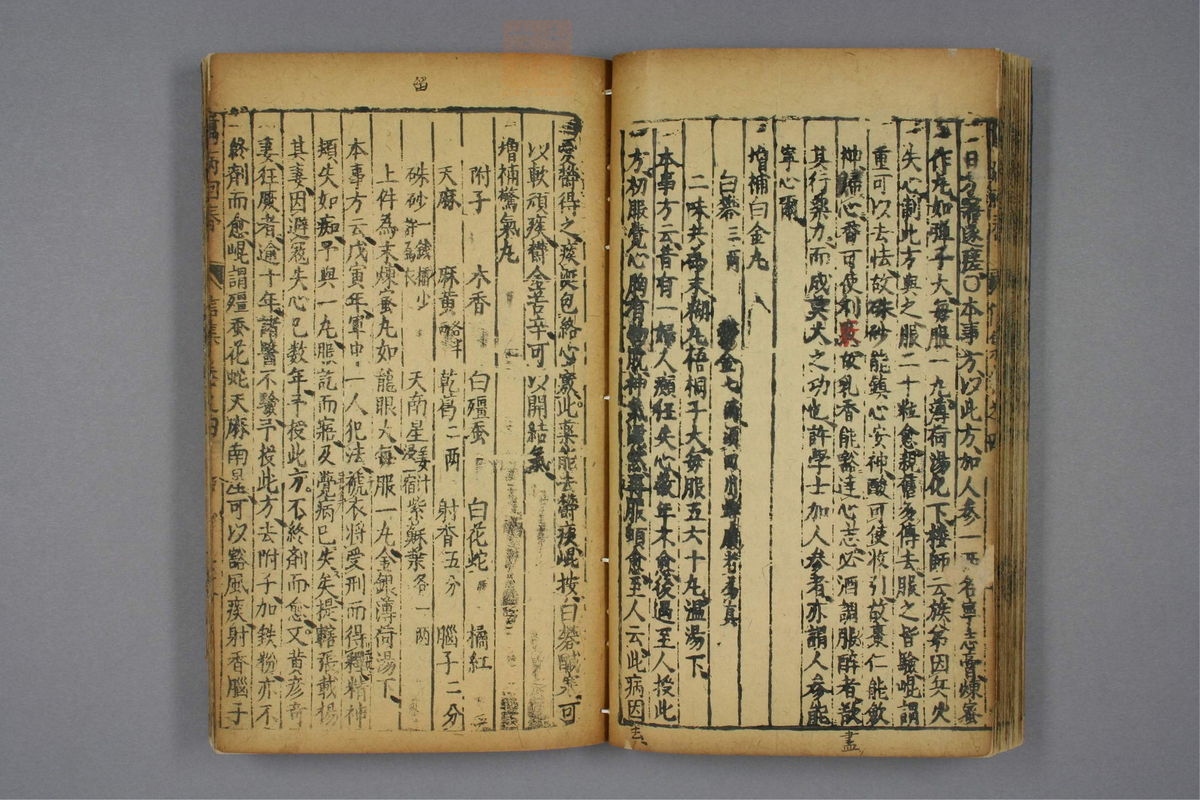 一日方寤遂瘥〇本事方以此方加人參一兩名寧志膏煉蜜
作丸如彈子大每服一丸薄荷湯化下樓師云族弟因兵火
失心制此方與之服二十粒愈親舊多傳去服之皆驗崐謂
重可以去怯故硃砂能鎮心安神酸可使收引故棗仁能斂
神歸心香可使利竅故乳香能豁達心志必酒調服醉者散
其行藥力而成莫大之功也許學士加人參者亦謂人參能
寧心爾
增補白金丸
白礬三兩 鬱金七兩須四川蟬腹者為真
二味共為末糊丸梧桐子大每服五六十丸溫湯下
本事方云昔有一婦人癲狂失心數年不愈後遇至人授此
方初服覺心胸有物脫神氣灑然再服頓愈至人云此病因
去
盡
憂鬱得之痰涎包絡心竅此藥能去鬱痰崐按白礬鹹寒可
以軟頑痰鬱金苦辛可以開結氣
增補驚氣丸
附子 木香 白殭蚕 白花蛇 橘紅
天麻 麻黃 乾葛二兩 射香五分 腦子二分
硃砂一錢 留少許為衣 天南星姜汁浸一宿 紫蘇葉各一兩
上件為末煉蜜丸如龍眼大每服一丸金銀薄荷湯下
本事方云戊寅年軍中一人犯法褫衣將受刑而得釋精神
頓失如痴予與一丸服訖而寐及覺病已失矣提轄張載楊
其妻因避寇失心已數年予授此方不終劑而愈又黃彥奇
妻狂厥者逾十年諸醫不驗予授此方去附子加鉄粉亦不
終劑而愈崐謂殭蚕花蛇天麻南星可以豁風痰射香腦子